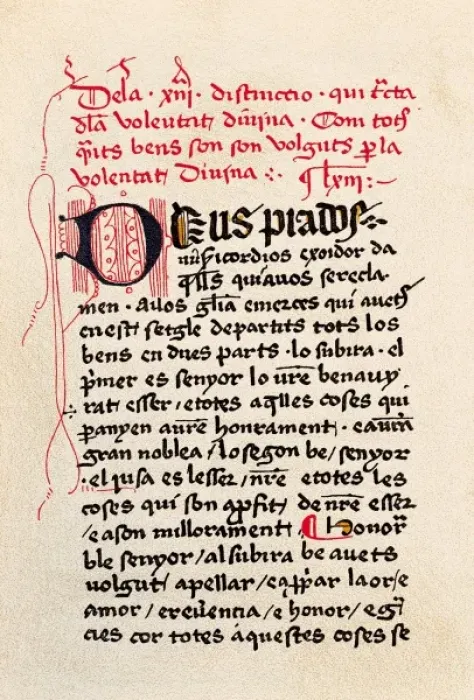 Dela · xiij · distinccio · qui tc̃ta
dl̃a volentat diuina · Com tots
q̃its bens son son volguts ꝑ la
volentat Diuina :· ¶ lxiij :~
DEUS piados
misericordios exoidor da
q̃lls qui auos serecla-
men · Auos gl̃ia emerces qui auets
en est setgle departits tots los
bens en dues parts · lo subira · el
p̃mer es senyor lo vr̃e benauy
rat esser / etotes aq̃lles coses qui
ꝑanyen avr̃e honrament · eavr̃a
gran noblea / lo segon be / senyor
· el jusa es lesser / nr̃e etotes les
coses qui son a ꝓfit / de nr̃e esser
/ e a son millorament / ¶ honor̃
ble senyor / al subira be auets
volgut / apellar / e a ꝓpar la or / e
amor / e reuẽencia / e honor / e gr̃
cies cor totes áquestes coses se